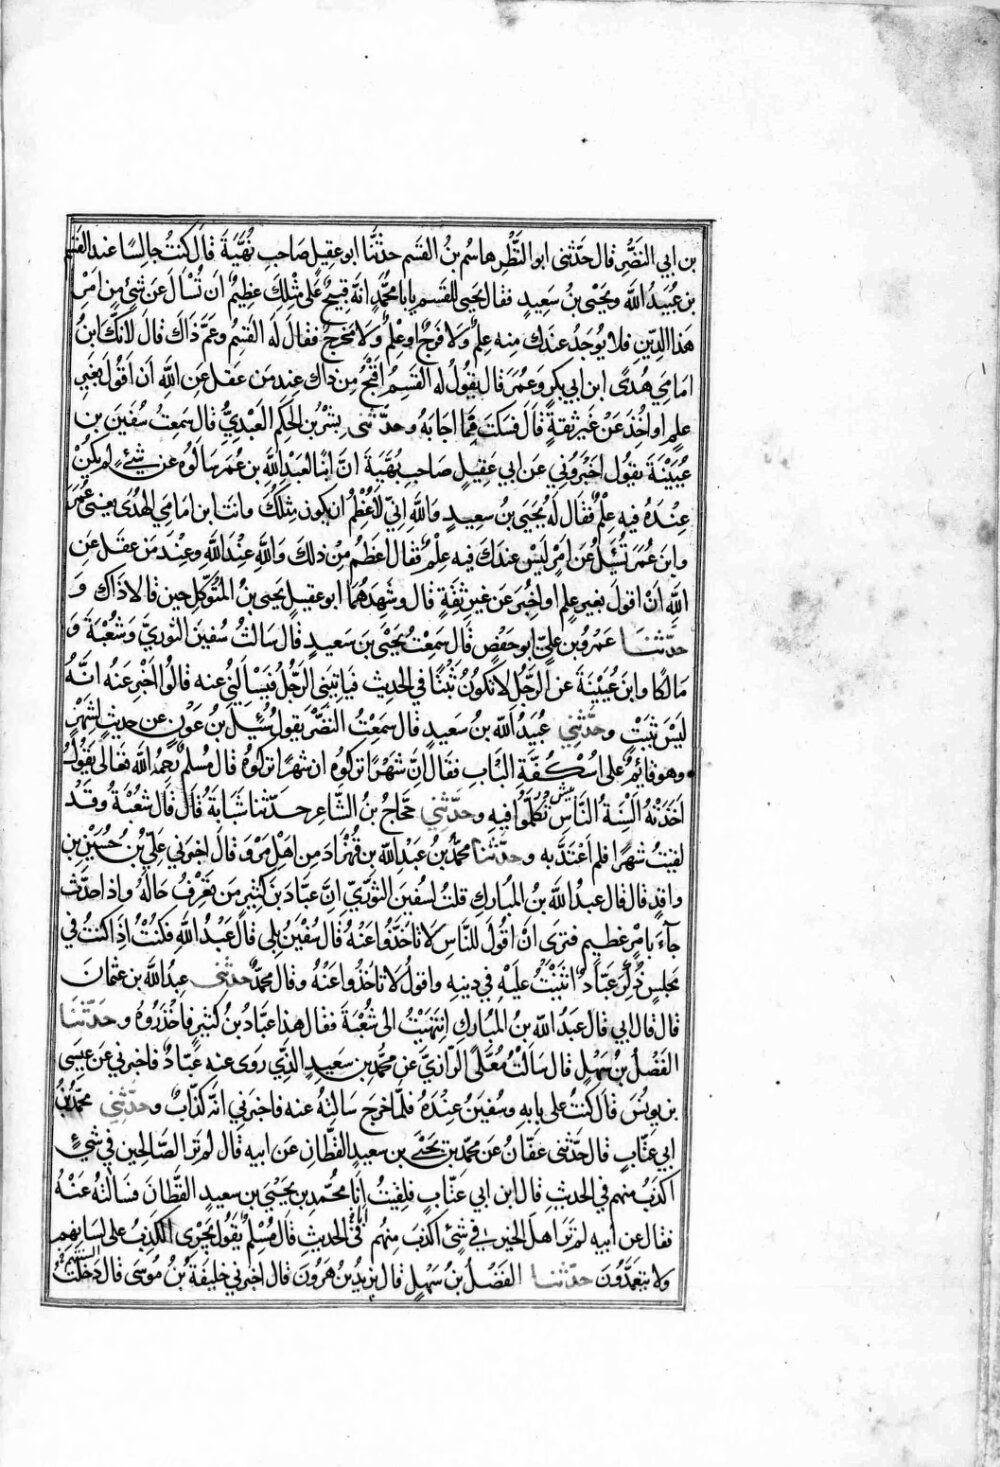 بن ابي النَضْرِ قال حَدَّثنى ابو النَّضْرِ هاشمُ بنُ القسمِ حدثنَا ابو عقيلٍ صَاحبِ بُهَيَّةَ قال كنتُ جالِسًا عند القسم
بن عُبَيدُ الله ويَحْيَى بنُ سَعِيدٍ فقال يحيى للقسم يا با محُمَّدٍ انَّه قبيحٌ عَلَى مثْلِكَ عظِيمٌ ان تُسْأل عَن شَئٍ مِن امْرِ
هَذا الدِّينِ فلا يُوجَدُ عندَك مِنه عِلمٌ وَلا فَرجٌ او عِلْمٌ ولا مَخرجٌ فقالَ لَه القسِمُ وعَمَّ ذاكَ قالَ لانَّكَ ابنُ
امامَي هُدًى ابن ابي بكرٍ وَعُمَرَ قال يقُولُ له القسِمُ اَقْبَحُ مِن ذاك عِند مَن عَقل عنِ اللهِ اَن اَقُولَ بغيرِ
علمٍ او اٰخُذَ عَنْ غَيرِ ثقةٍ قَالَ فسَكتَ فمَا اجَابَهُ وحَدَّثنى بِشْرُ بن الحكَمِ العَبْدِيُّ قال سَمِعتُ سُفينَ بن
عُيَيْنَةَ يقولُ اخبَرُوني عَن ابي عَقِيلٍ صَاحبِ بُهَيَّةَ انَّ ابنًا لعَبْدِ اللهِ بن عُمَر سَالُوه عن شئٍ لم يكنْ
عِنْدَهُ فيهِ عِلْمٌ فقَال لهُ يحيَى بنُ سعيدٍ واللهِ اِنّي لَاُعْظِمُ ان يكون مِثلُكَ وانتَ ابن امامَي الهُدَى يعنى عُمَرَ
وابن عُمَرَ تُسْئَلُ عَن امْرٍ ليْسَ عندَك فيهِ عِلْمٌ فقال اَعظمُ مِنْ ذلكَ واللهِ عِنْدَ اللهِ وعِنْدَ مَن عقلَ عنِ
اللهِ اَنْ اقولَ بغيرِ علمٍ او اُخبِرَ عَن غيرِ ثِقةٍ قال وشَهِدَهُما ابو عقيلٍ يحيى بنُ المُتَوَكّلِ حين قالا ذاك وَ
حدّثنا عَمْرُو بن عليٍّ ابو حَفصٍ قال سَمِعْتُ يَحْيَى بن سَعيدٍ قال سَالتُ سُفينَ الثوريَّ وَشُعْبةَ وَ
مَالِكًا وابنَ عُيَيْنَةَ عن الرَّجُل لا تَكونُ ثَبْتًا في الحَديثِ فيَاتِينى الرَّجُلُ فيَسْاَلُنِي عنه قالُوا اَخبِر عَنهُ انَّهُ
ليْسَ بثبْتٍ وحدَّثنِي عُبَيدُ اللهِ بن سَعيدٍ قال سَمِعْتُ النَضْرَ يقولُ سُئِلَ بنُ عَونٍ عن حديثٍ لِشَهْرٍ
وهو قائمٌ على اُسْكُفَّةِ البَابِ فقال اِنَّ شَهْرًا تركوه ان شهْرًا تركوهُ قال مُسْلمٌ رَحِمهُ الله تعالى يقولُ
اَخَذَتْهُ اَلْسِنةُ النَّاسِ تكلَّموا فيهِ وحدَّثنِي حَجّاجُ بنُ الشّاعرِ حدّثنا شَبَابَةُ قال قال شُعْبةُ وقدْ
لقيتُ شَهرًا فلم اَعْتَدَّ بهِ وحَدّثنا محمَّدُ بن عَبدِ اللهِ بن قُهْزاد مِن اهْلِ مرْوَ قال اخبرني عَلِيُّ بنُ حُسَيْنِ بن
واقِدٍ قال قال عبدُ اللهِ بنُ المُباركِ قلتُ لسُفينَ الثوْرِيّ اِنَّ عبّادَ بن كثيرٍ مَن تَعْرِفُ حَالَهُ واِذا حدَّث
جَآءَ بامْرٍ عَظيمٍ فترَى انْ اقُولَ للنَّاسِ لا تاخُذُوا عَنْهُ قال سُفْينُ بلى قالَ عَبْدُ اللهِ فكُنْتُ اِذَا كنتُ في
مَجلِسٍ ذُكِرَ عَبّادٌ اثنَيْتُ عَلَيْهِ في دينِهِ واقولُ لا تاخُذُوا عَنْهُ وقال محمَّدٌ حدثنى عبدُ اللهِ بن عثمانَ
قال قال ابي قال عبدُ اللهِ بنُ المُبَاركِ اِنتَهَيْتُ الى شُعْبةَ فقال هذا عبّادُ بنُ كثيرٍ فاحْذَرُوهُ وحَدّثنَا
الفَضْلُ بنُ سَهْلٍ قال سَالتُ مُعَلَّى الرّازِيَّ عَن محُمَّدِ بن سَعيدٍ الذِّي روَى عنه عبّادٌ فاخبَرني عَن عيسَى
بن يونُسَ قالَ كنتُ على بابِهِ وسُفينُ عِنْدَهُ فلمّا خرجَ سَالتُهُ عنه فاخبرَني انّه كذّابٌ وحدَّثنِي محمَّدُ بنُ
ابي عتّابٍ قال حَدَّثنى عَفّانُ عَن محمّدِ بن يَحْيَى بن سَعِيدٍ القطّانِ عَن ابيهِ قال لم تَرَ الصَّالحِين في شئٍ
اَكذَبَ منهم في الحديثِ قال ابن ابي عتّابٍ فلقِيتُ اَنَا محُمّدَ بن يحيَى بن سعيدٍ القطَّانَ فسَالتهُ عَنْهُ
فقال عن ابيهِ لم تَرَ اهلَ الخيرِ في شئٍ اكذَبَ مِنهُم في الحديثِ قال مُسْلِمٌ يقُولُ يَجْرى الكَذِبُ على لسَانِهم
ولا يتعَمَّدُونَ حدّثنا الفَضْلُ بنُ سَهْلٍ قال يزيدُ بن هرُونَ قال اخبرني خليفةُ بنُ مُوسَى قال دَخلتُ